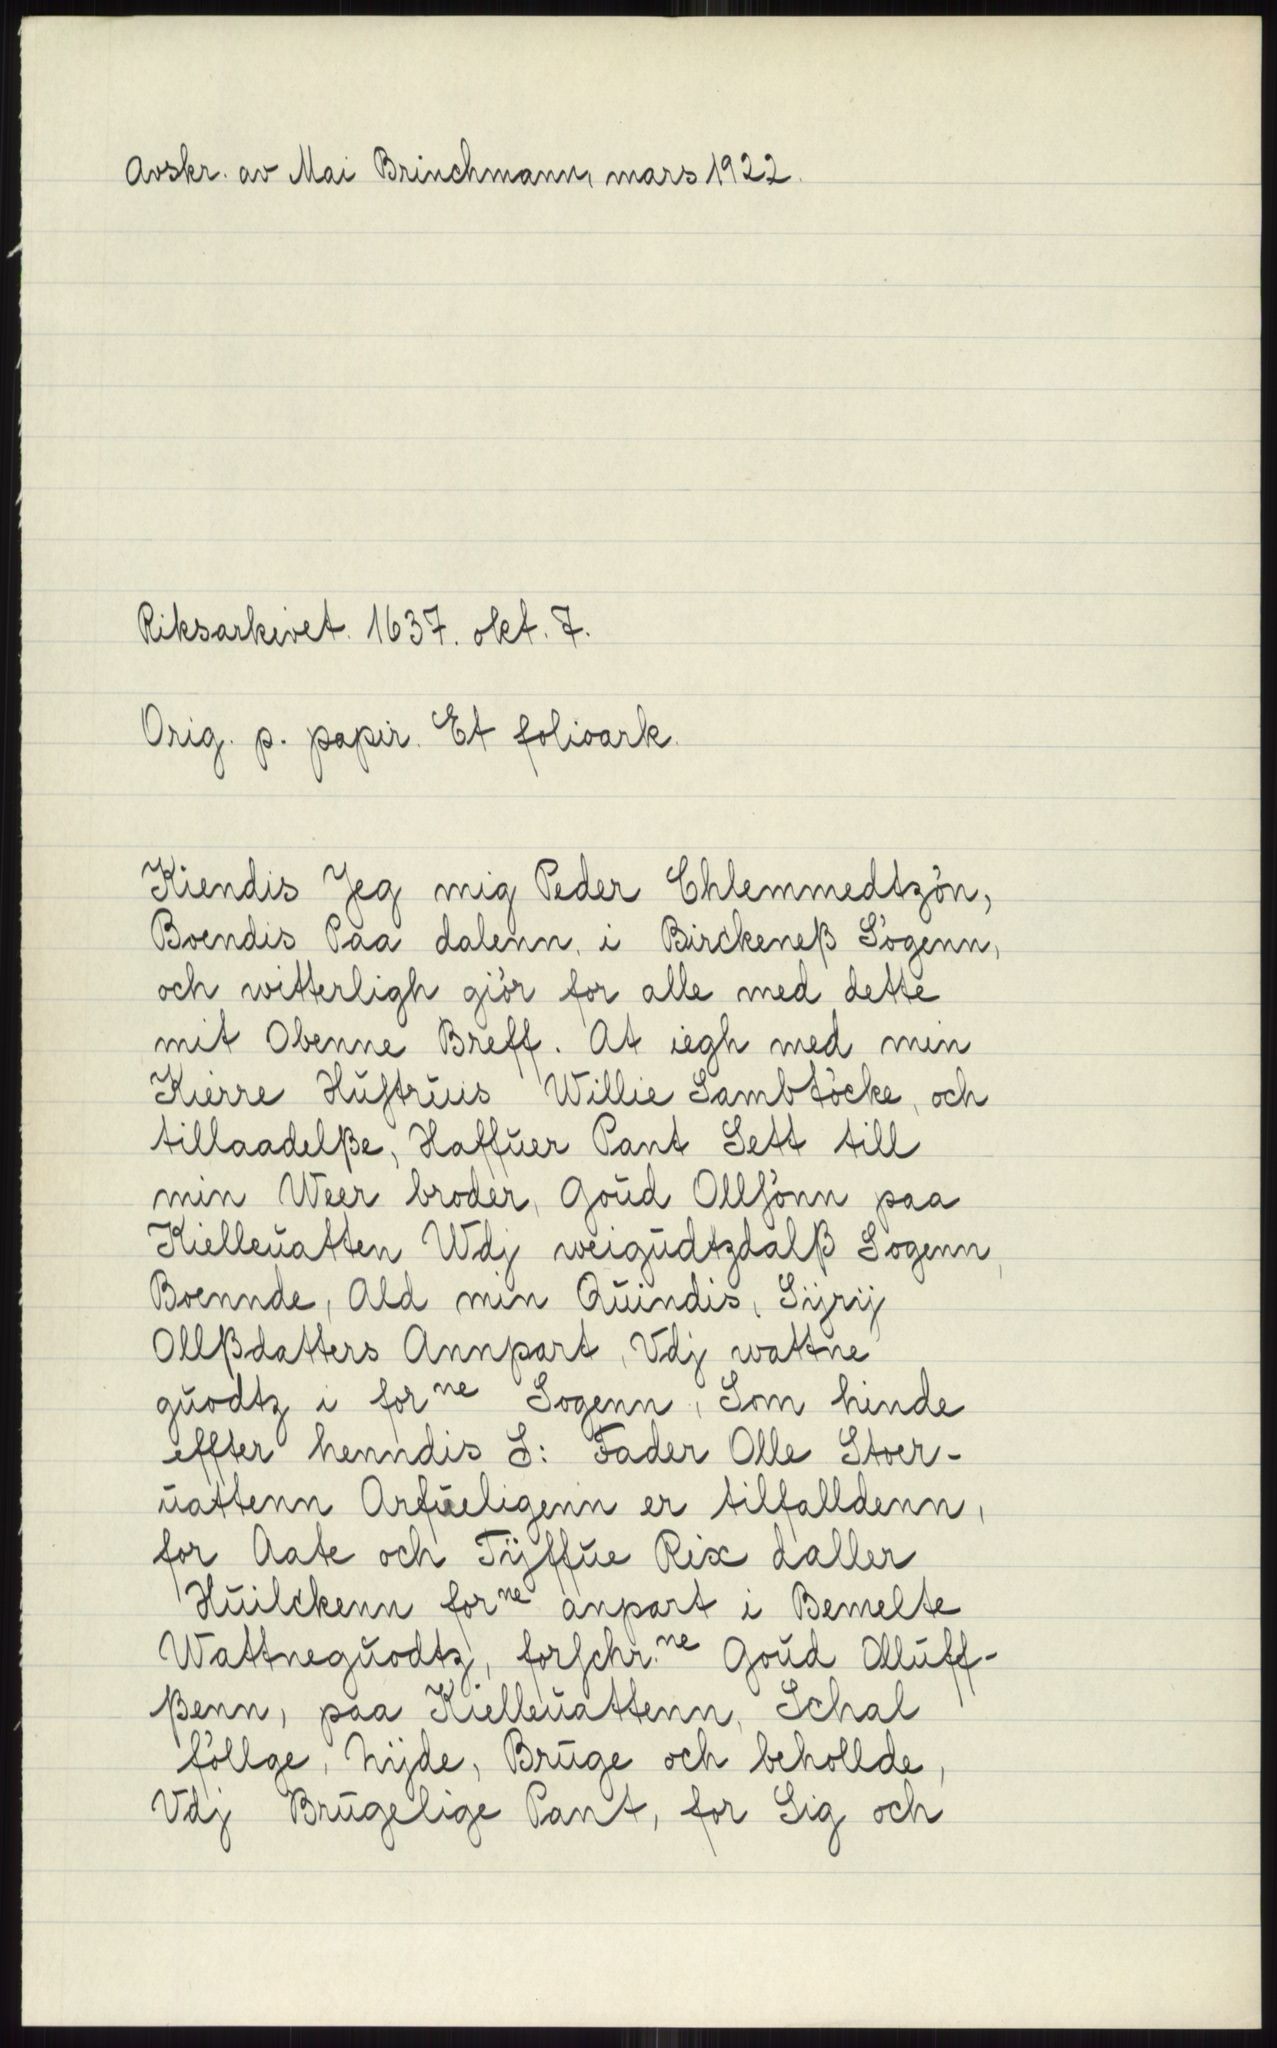 Avskr. av Mai Brinchmann, mars 1922.
Riksarkivet. 1637. okt. 7.
Orig. p. papir. Et folioark.
Kiendis Jeg mig Peder Chlemmedtzön,
Boendis Paa dalenn, i Birckeneß Sogenn,
och witterligh giör for alle med dette
mit Obenne Breff. At iegh med min
Kierre Hustruis Willie Sambtöcke, och
tillaadelße, Haffuer Pant Sett till
min Weer broder, Goud Ollsönn paa
Kielleuatten Wdj weigudtzdalß Sogenn,
Boennde, Ald min Quindis, Sijrij
Ollßdatters Annpart, Vdj wattne
guodtz i forne Sogenn, Som hinde
effter henndis S: Fader Olle Stoer-
uattenn Arfueligenn er tilfalldenn,
for Aate och Tijffue Rix daller
Huilckenn forne anpart i Bemelte
Wattneguodtz, forschr.ne Goud Olluff-
ßenn, paa Kielleuattenn, Schal
föllge, Nijde, Bruge och behollde,
Vdj Brugelige Pant, for Sig och